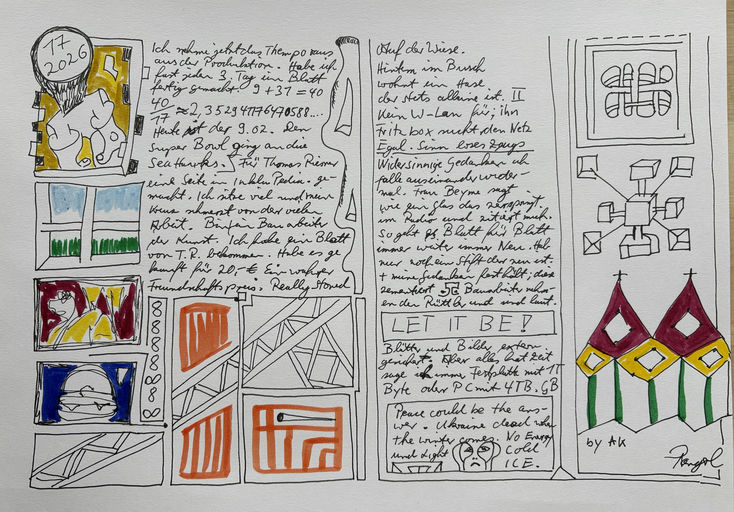 17
2026
Ich nehme jetzt das Thempo raus
aus der Produktion. Habe ich
fast jeden 3. Tag ein Blatt
fertig gemacht. 9 + 31 = 40
40
17
≈ 2,352941176470588....
Heute ist der 9.02. Den
Super Bowl ging an die
Sea Hawks. Für Thomas
eine Seite in Inklu Pedia. ge-
macht. Ich sitze viel und mein
schmerzt von der vielen
Arbeit. Bin ein Bauarbeiter
der Kunst. Ich habe ein Blatt
von T.R. bekommen. Habe es ge-
kauft für 20,- € Ein wahrer
Freundschaftspreis. Really stoned
Auf der Wiese.
Hinten im Busch
wohnt ein Hase
der stets alleine ist. II
Kein W-Lan für ihn
Fritz box sucht den Netz
Egal. Sinn loses
Widersinnige Gedanken ich
falle auseinander wieder
mal. Frau Beyme sagt
wie ein Glas das zerspringt.
im Radio und zitiert mich.
So geht es Blatt für Blatt
immer weiter immer Neu. Hab
nur noch ein Stift der neu ist.
+ meine Gedanken fest hält, dass
zementiert Bauarbeiter nehm-
en den und sind laut.
LET IT BE!
Blätter und Bilder extern
gesichert. Aber alles hat Zeit
sage ich immer Festplatte mit 1T
Byte oder PC mit 4TB. GB
Peace could be the ans-
wer. Ukraine dead when
the winter comes. No Energy
und Light Cold
ICE.
by AK